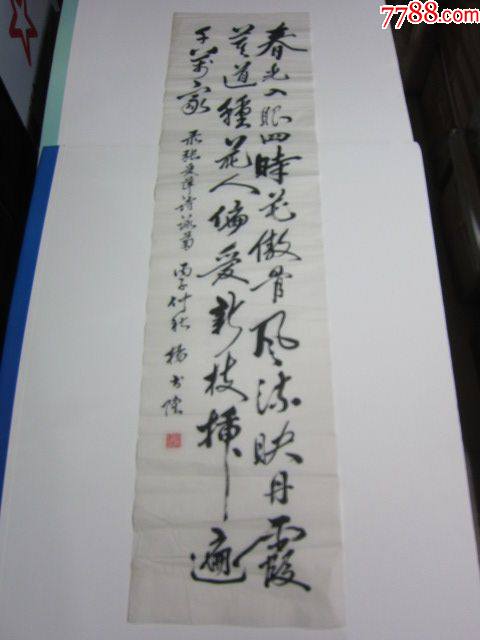 7788.com
春光入眼四時花傲骨風流映丹霞
莫道種花人偏愛新枝插遍
千萬家
录張爱萍诗詠菊 丙子仲秋 楊书